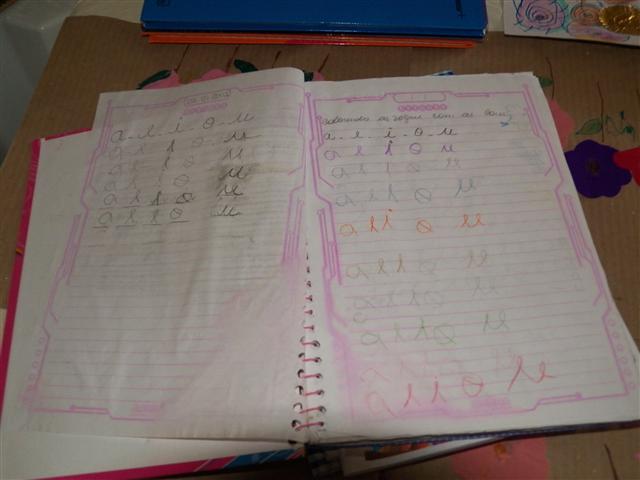 a e i o u
a e i o u
a e i o u
a e i o u
a e i o u
a e i o u
as vogais com as
a. e. i. o. u
a e i o u
a e i o u
a e i o u
a e i o u
a e i o u
a e i o u
a e i o u
a e i o u